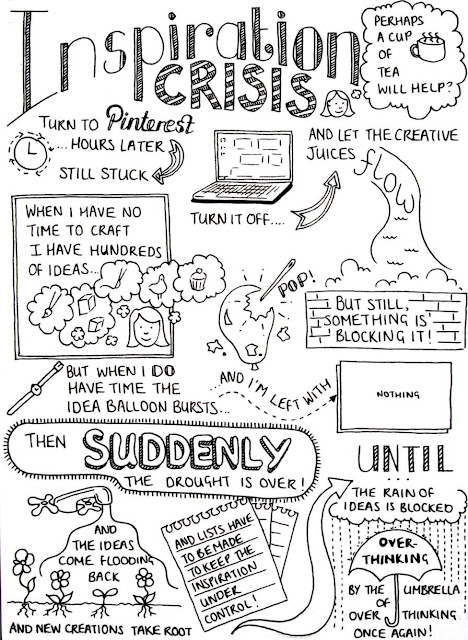 Inspiration
CRISIS
PERHAPS
A CUP
OF
TEA
WILL HELP?
TURN TO Pinterest
... HOURS LATER
STILL STUCK
TURN IT OFF....
AND LET THE CREATIVE
JUICES flow
WHEN I HAVE NO
TIME TO CRAFT
I HAVE HUNDREDS
OF IDEAS...
POP!
BUT STILL,
SOMETHING IS
BLOCKING IT!
BUT WHEN I DO
HAVE TIME THE
IDEA BALLOON BURSTS...
...AND I'M LEFT WITH
NOTHING
THEN SUDDENLY
THE DROUGHT IS OVER!
AND
THE IDEAS
COME FLOODING
BACK
AND NEW CREATIONS TAKE ROOT
AND LISTS HAVE
TO BE MADE
TO KEEP THE
INSPIRATION
UNDER
CONTROL!
UNTIL
THE RAIN OF
IDEAS IS BLOCKED
OVER-
THINKING
BY THE UMBRELLA
OF
OVER THINKING
ONCE AGAIN!